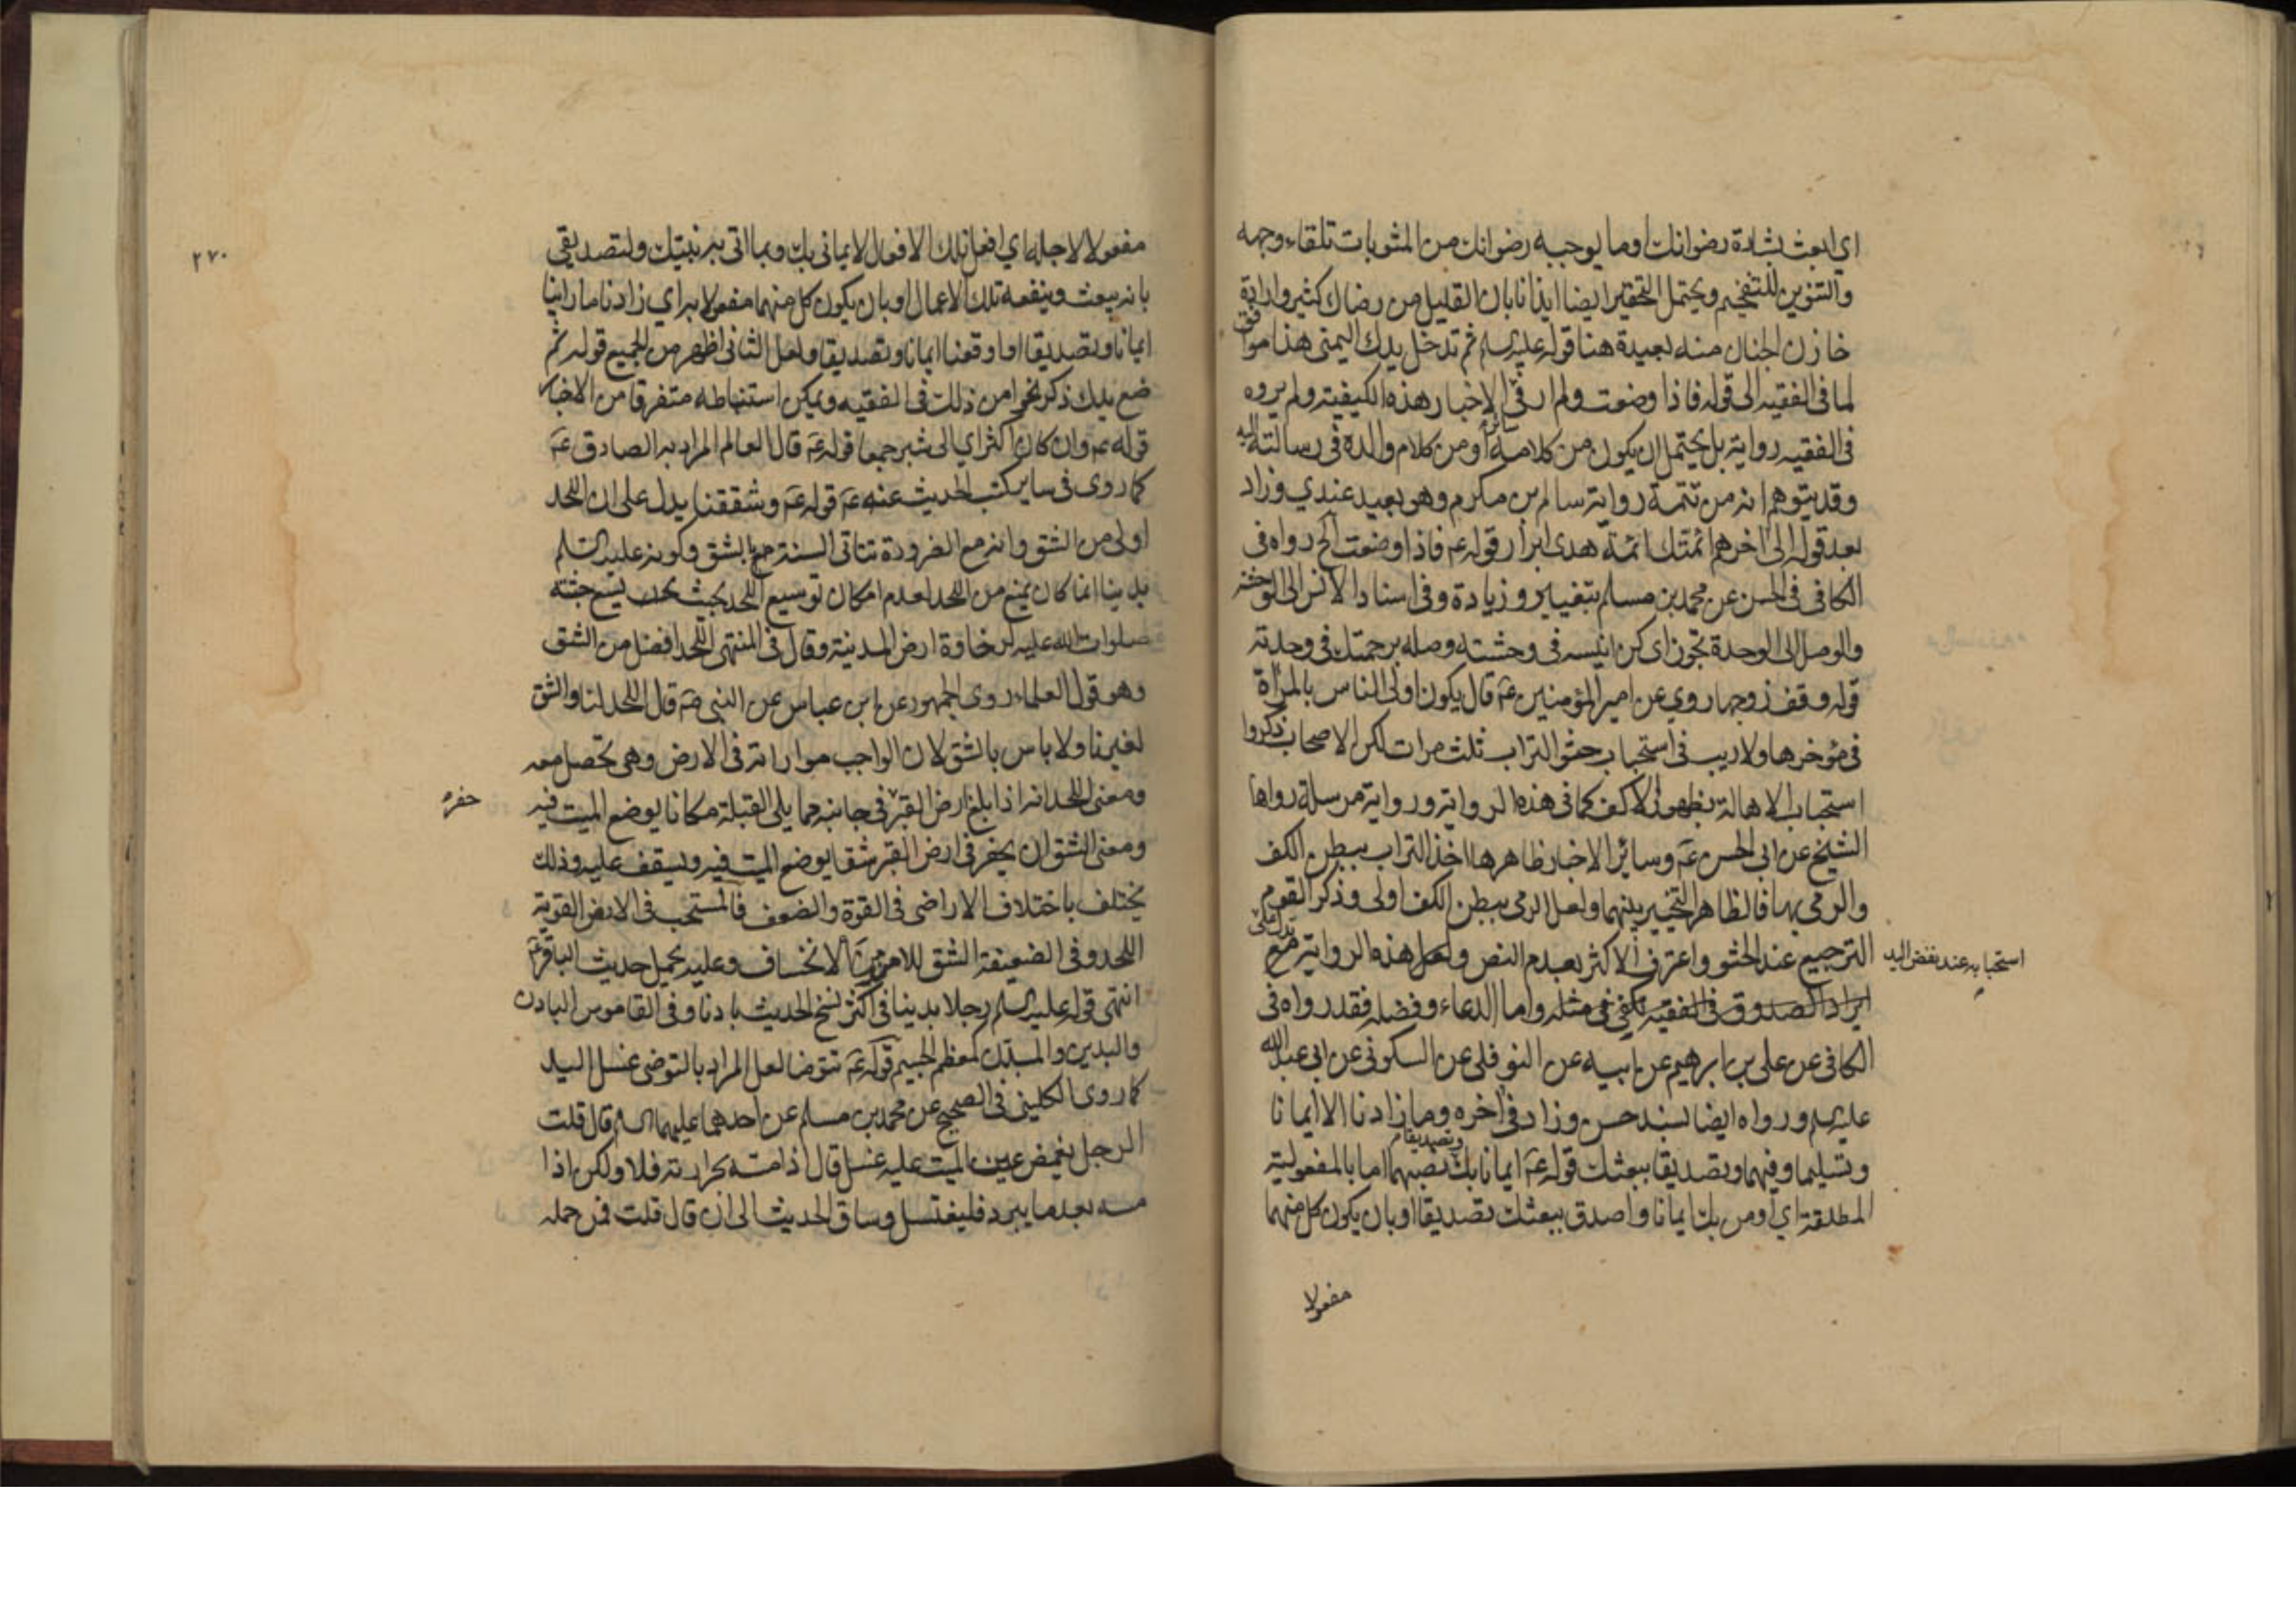 اي ابعث بشارة رضوانك او ما يوجبه رضوانك من المثوبات تلقاء وجهه
والتنوين للتفخيم ويحتمل التحقير ايضا ايذانا بان القليل من رضاك كثير وارادة
خازن الجنان منه بعيدة هنا قوله عليه السلم ثم تدخل يدك اليمنى هذا موافق
لما في الفقيه الى قوله فاذا وضعت ولم ار في الاخبار هذه الكيفية ولم يروه
في الفقيه رواية بل يحتمل ان يكون من كلامه او من كلام والده في رسالته اليه
وقد يتوهم انه من تتمة رواية سالم بن مكرم وهو بعيد عندي وزاد
بعد قوله الى اخرهم ائمتك ائمة هدى ابرار قوله عم فاذا وضعت الخ رواه في
الكافي في الحسن عن محمد بن مسلم بتغيير وزيادة وفي اسناد الانس الى الوحشة
والوصل الى الوحدة تجوز اي كن انيسه في وحشته وصله برحمتك في وحدته
قوله وقف زوجها روي عن امير المؤمنين عم قال يكون اولى الناس بالمراة
في مؤخرها ولا ريب في استحباب حثو التراب ثلث مرات لكن الاصحاب ذكروا
استحباب الاهالة بظهور الاكف كما في هذه الرواية ورواية مرسلة رواها
الشيخ عن ابي الحسن عم وسائر الاخبار ظاهرها اخذ التراب ببطن الكف
والرمي بها فالظاهر التخيير بينهما ولعل الرمي ببطن الكف اولى وذكر القوم
الترجيع عند الحثو واعترف الاكثر بعدم النص ولعل هذه الرواية تدل على
استحبابه عند نفض اليد
ايراد الصدوق في الفقيه تكفي في مثله واما الدعاء وفضله فقد رواه في
الكافي عن علي بن ابرهيم عن ابيه عن النوفلي عن السكوني عن ابي عبد الله
عليه السلم ورواه ايضا بسند حسن وزاد في اخره وما زادنا الا ايمانا
وتسليما وفيهما وتصديقا ببعثك قوله عم ايمانا بك وتصديقا نصبهما اما بالمفعولية
المطلقة اي اومن بك ايمانا واصدق ببعثك تصديقا او بان يكون كل منهما
مفعولا
٢٧٠
مفعولا لاجله اي افعل تلك الافعال لايماني بك وبما اتى به نبيك ولتصديقي
بانه يبعث وينفعه تلك الاعمال او بان يكون كل منهما مفعولا به اي زادنا ما راينا
ايمانا وتصديقا او اوقعنا ايمانا وتصديقا ولعل الثاني اظهر من الجميع قوله ثم
ضع يدك ذكر نحوا من ذلك في الفقيه ويمكن استنباطه متفرقا من الاخبار
قوله عم وان كان اكثر اي الى شبر جمعا قوله عم قال العالم المراد به الصادق عم
كما روى في ساير كتب الحديث عنه عم قوله عم وشققنا يدل على ان اللحد
اولى من الشق وانه مع الضرورة تتاتى السنة بالشق وكونه عليه السلم
بدينا انما كان يمنع من اللحد لعدم امكان توسيع اللحد بحيث يسع جثته
صلوات الله عليه لرخاوة ارض المدينة وقال في المنتهى اللحد افضل من الشق
وهو قول العلماء روى الجمهور عن ابن عباس عن النبي ص قال اللحد لنا والشق
لغيرنا ولا باس بالشق لان الواجب مواراته في الارض وهي تحصل معه
ومعنى اللحد انه اذا بلغ ارض القبر في جانبه مما يلي القبلة مكانا يوضع الميت فيه
حفر
ومعنى الشق ان يحفر في ارض القبر شقا يوضع الميت فيه ويسقف عليه وذلك
يختلف باختلاف الاراضي في القوة والضعف فالمستحب في الارض القوية
اللحد وفي الضعيفة الشق للامن من الانخساف وعليه يحمل حديث الباقر عم
انتهى قوله عليه السلم رجلا بدينا في اكثر نسخ الحديث بادنا وفي القاموس البادن
والبدين والمبدن كمعظم الجسيم قوله عم تتوضا لعل المراد بالتوضي غسل اليد
كما روى الكليني في الصحيح عن محمد بن مسلم عن احدهما عليهما السلم قال قلت
الرجل يغمض عين الميت عليه غسل قال اذا مسه بحرارته فلا ولكن اذا
مسه بعد ما يبرد فليغتسل وساق الحديث الى ان قال قلت فمن حمله